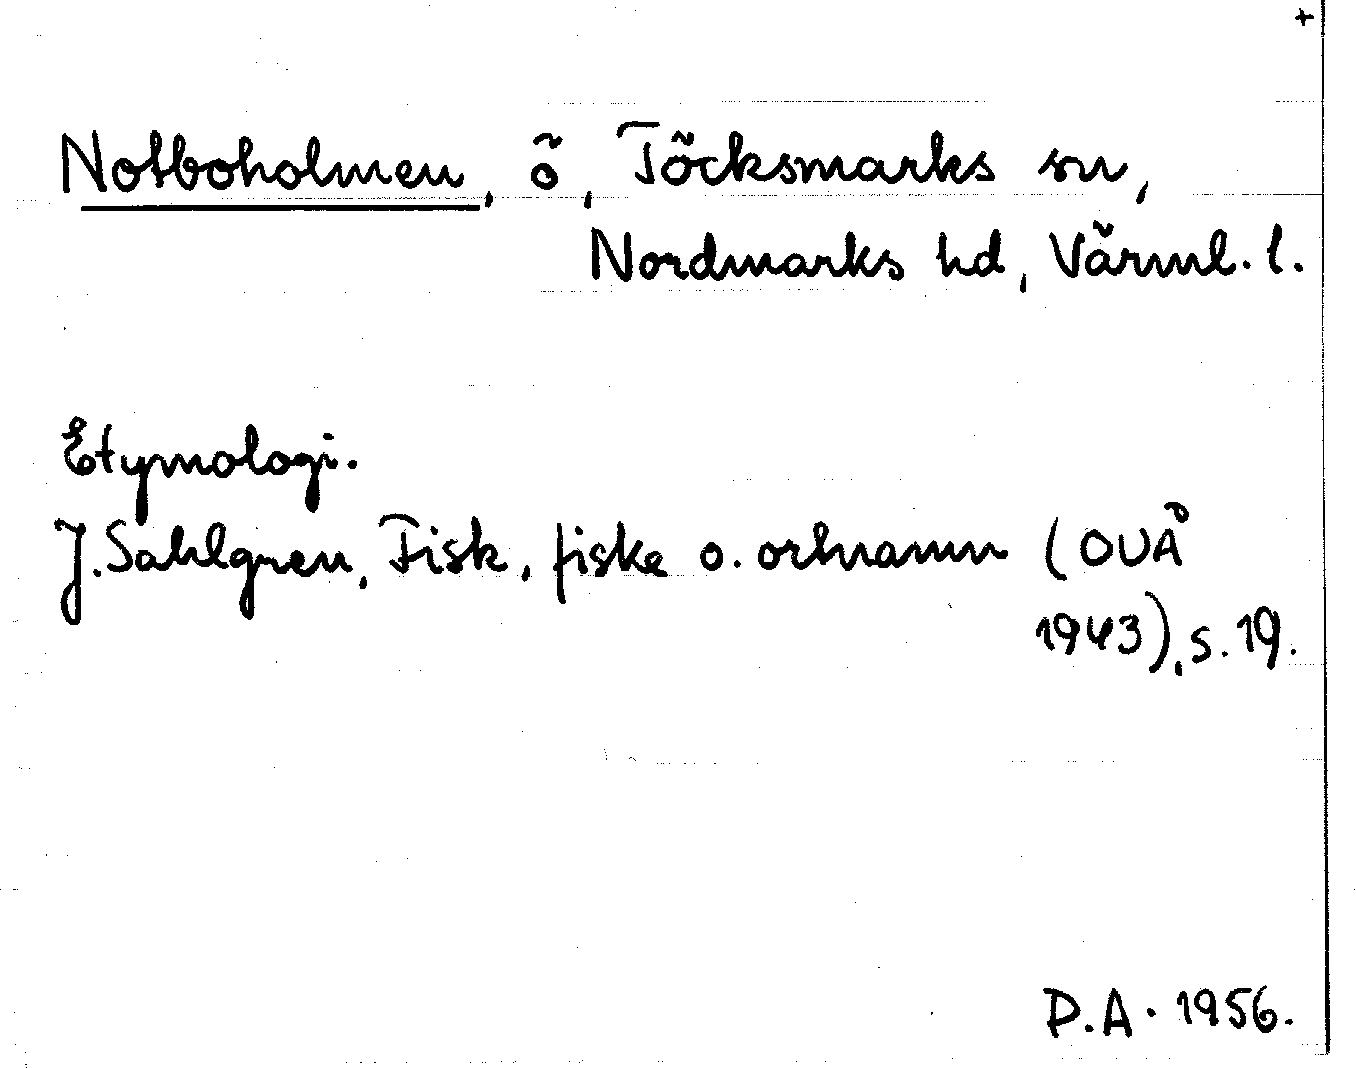 +
Notboholmen, ö, Töcksmarks sn,
Nordmarks hd, Värml. l.
Etymologi.
J. Sahlgren, Fisk, fiske o. ortnamn (OUÅ
1943), s. 19.
P.A. 1956.